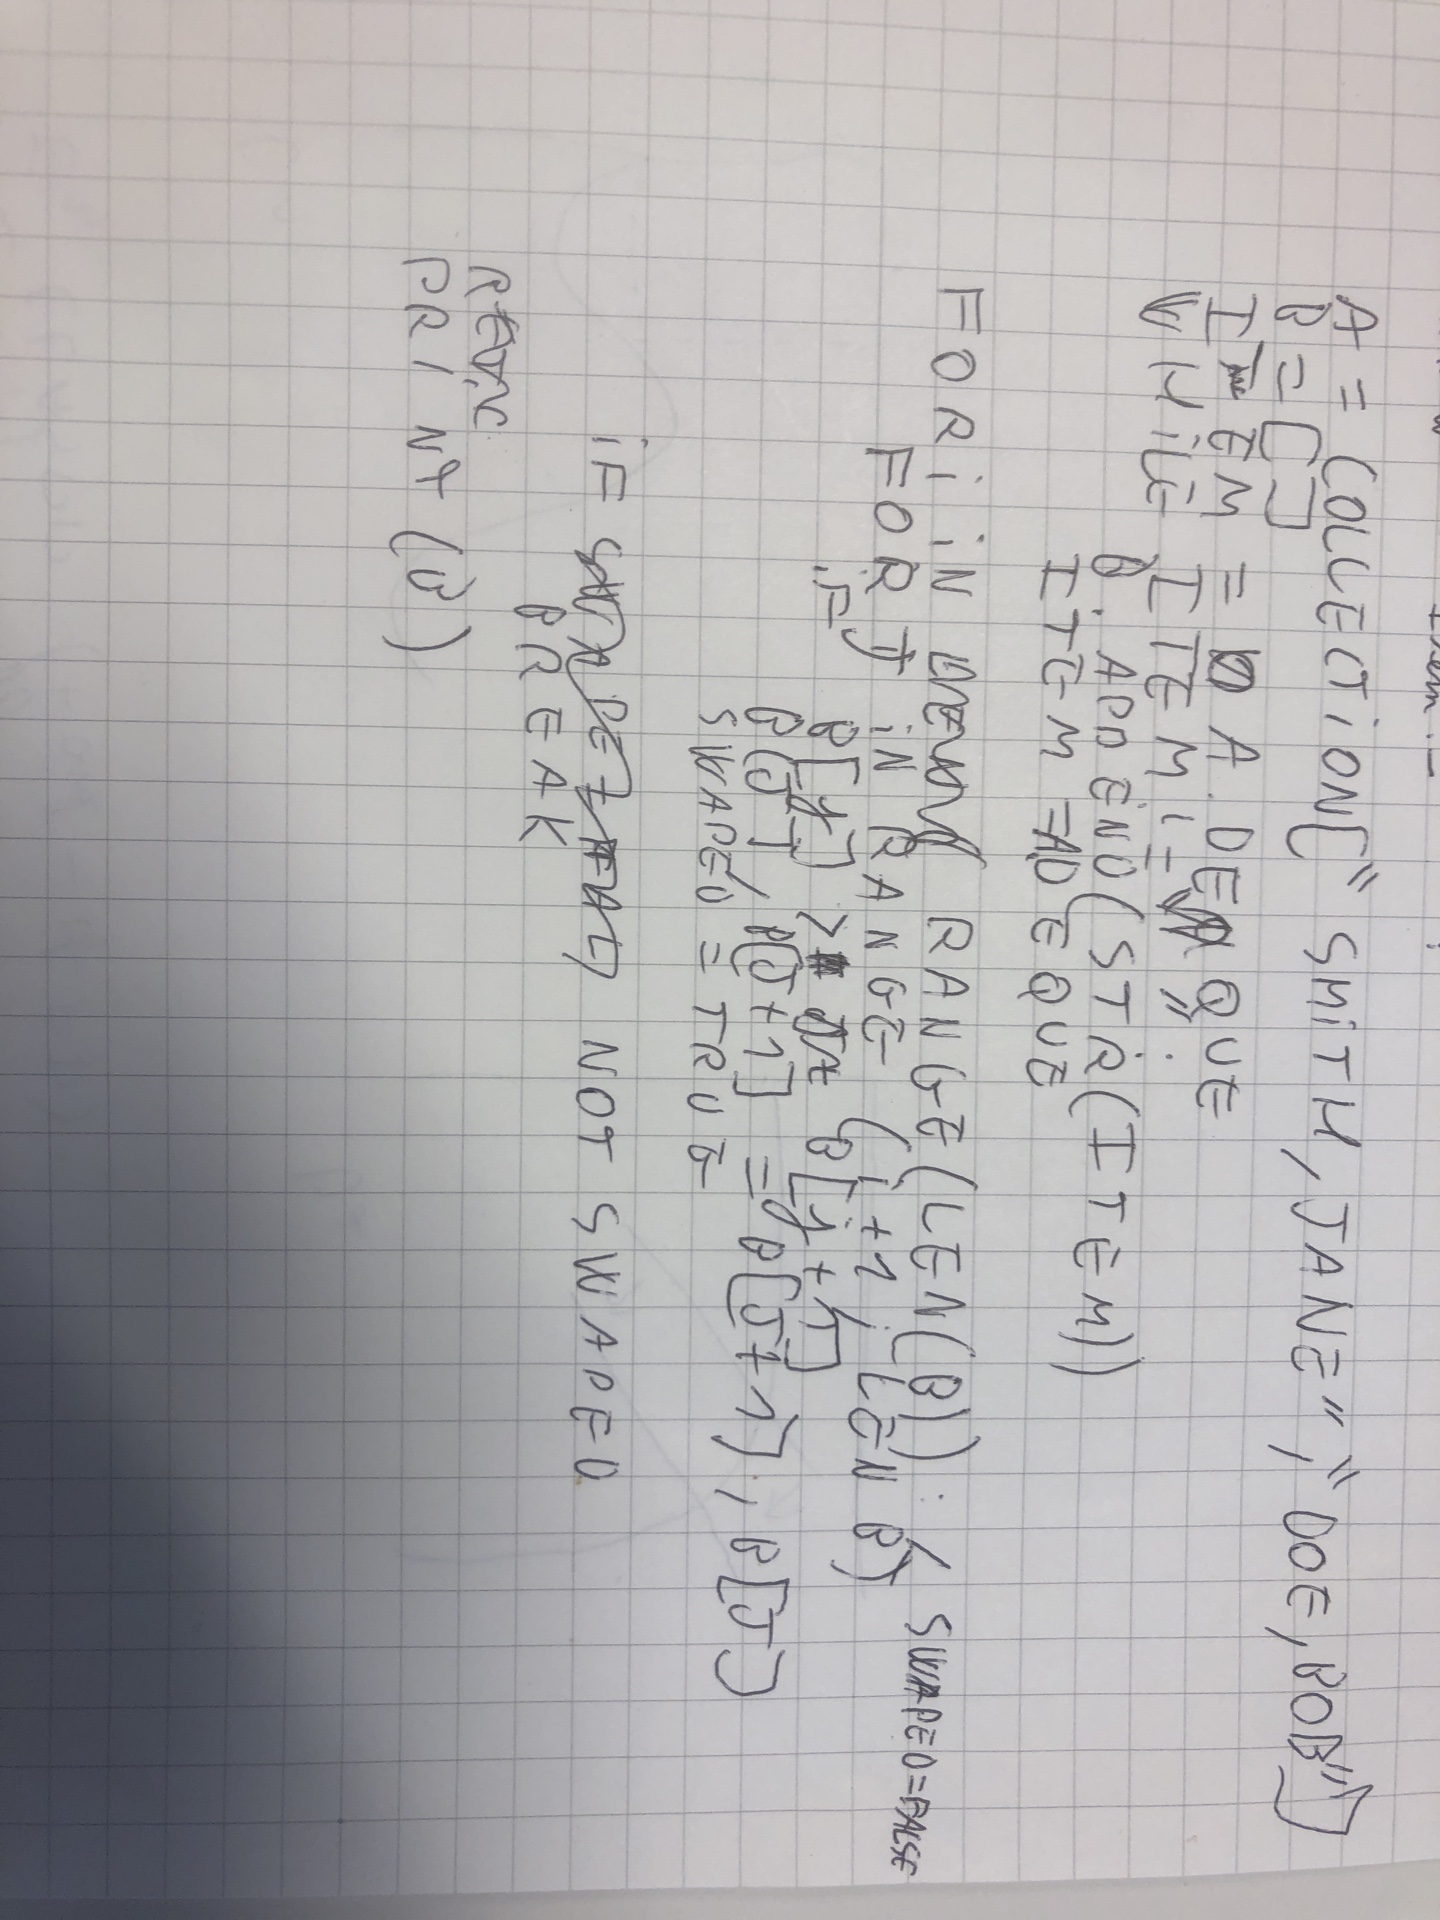 A = COLLECTION["SMITH, JANE", "DOE, BOB"]
B = []
ITEM = A.DEQUE
WHILE ITEM != "":
B.APPEND(STR(ITEM))
ITEM = A.DEQUE
FOR i iN RANGE(LEN(B)): SWAPED=FALSE
FOR J iN RANGE (i+1, LEN B)
iF B[J] > B[J+1]
B[J], B[J+1] = B[J+1], B[J]
SWAPED = TRUE
iF NOT SWAPED
BREAK
PRINT (B)